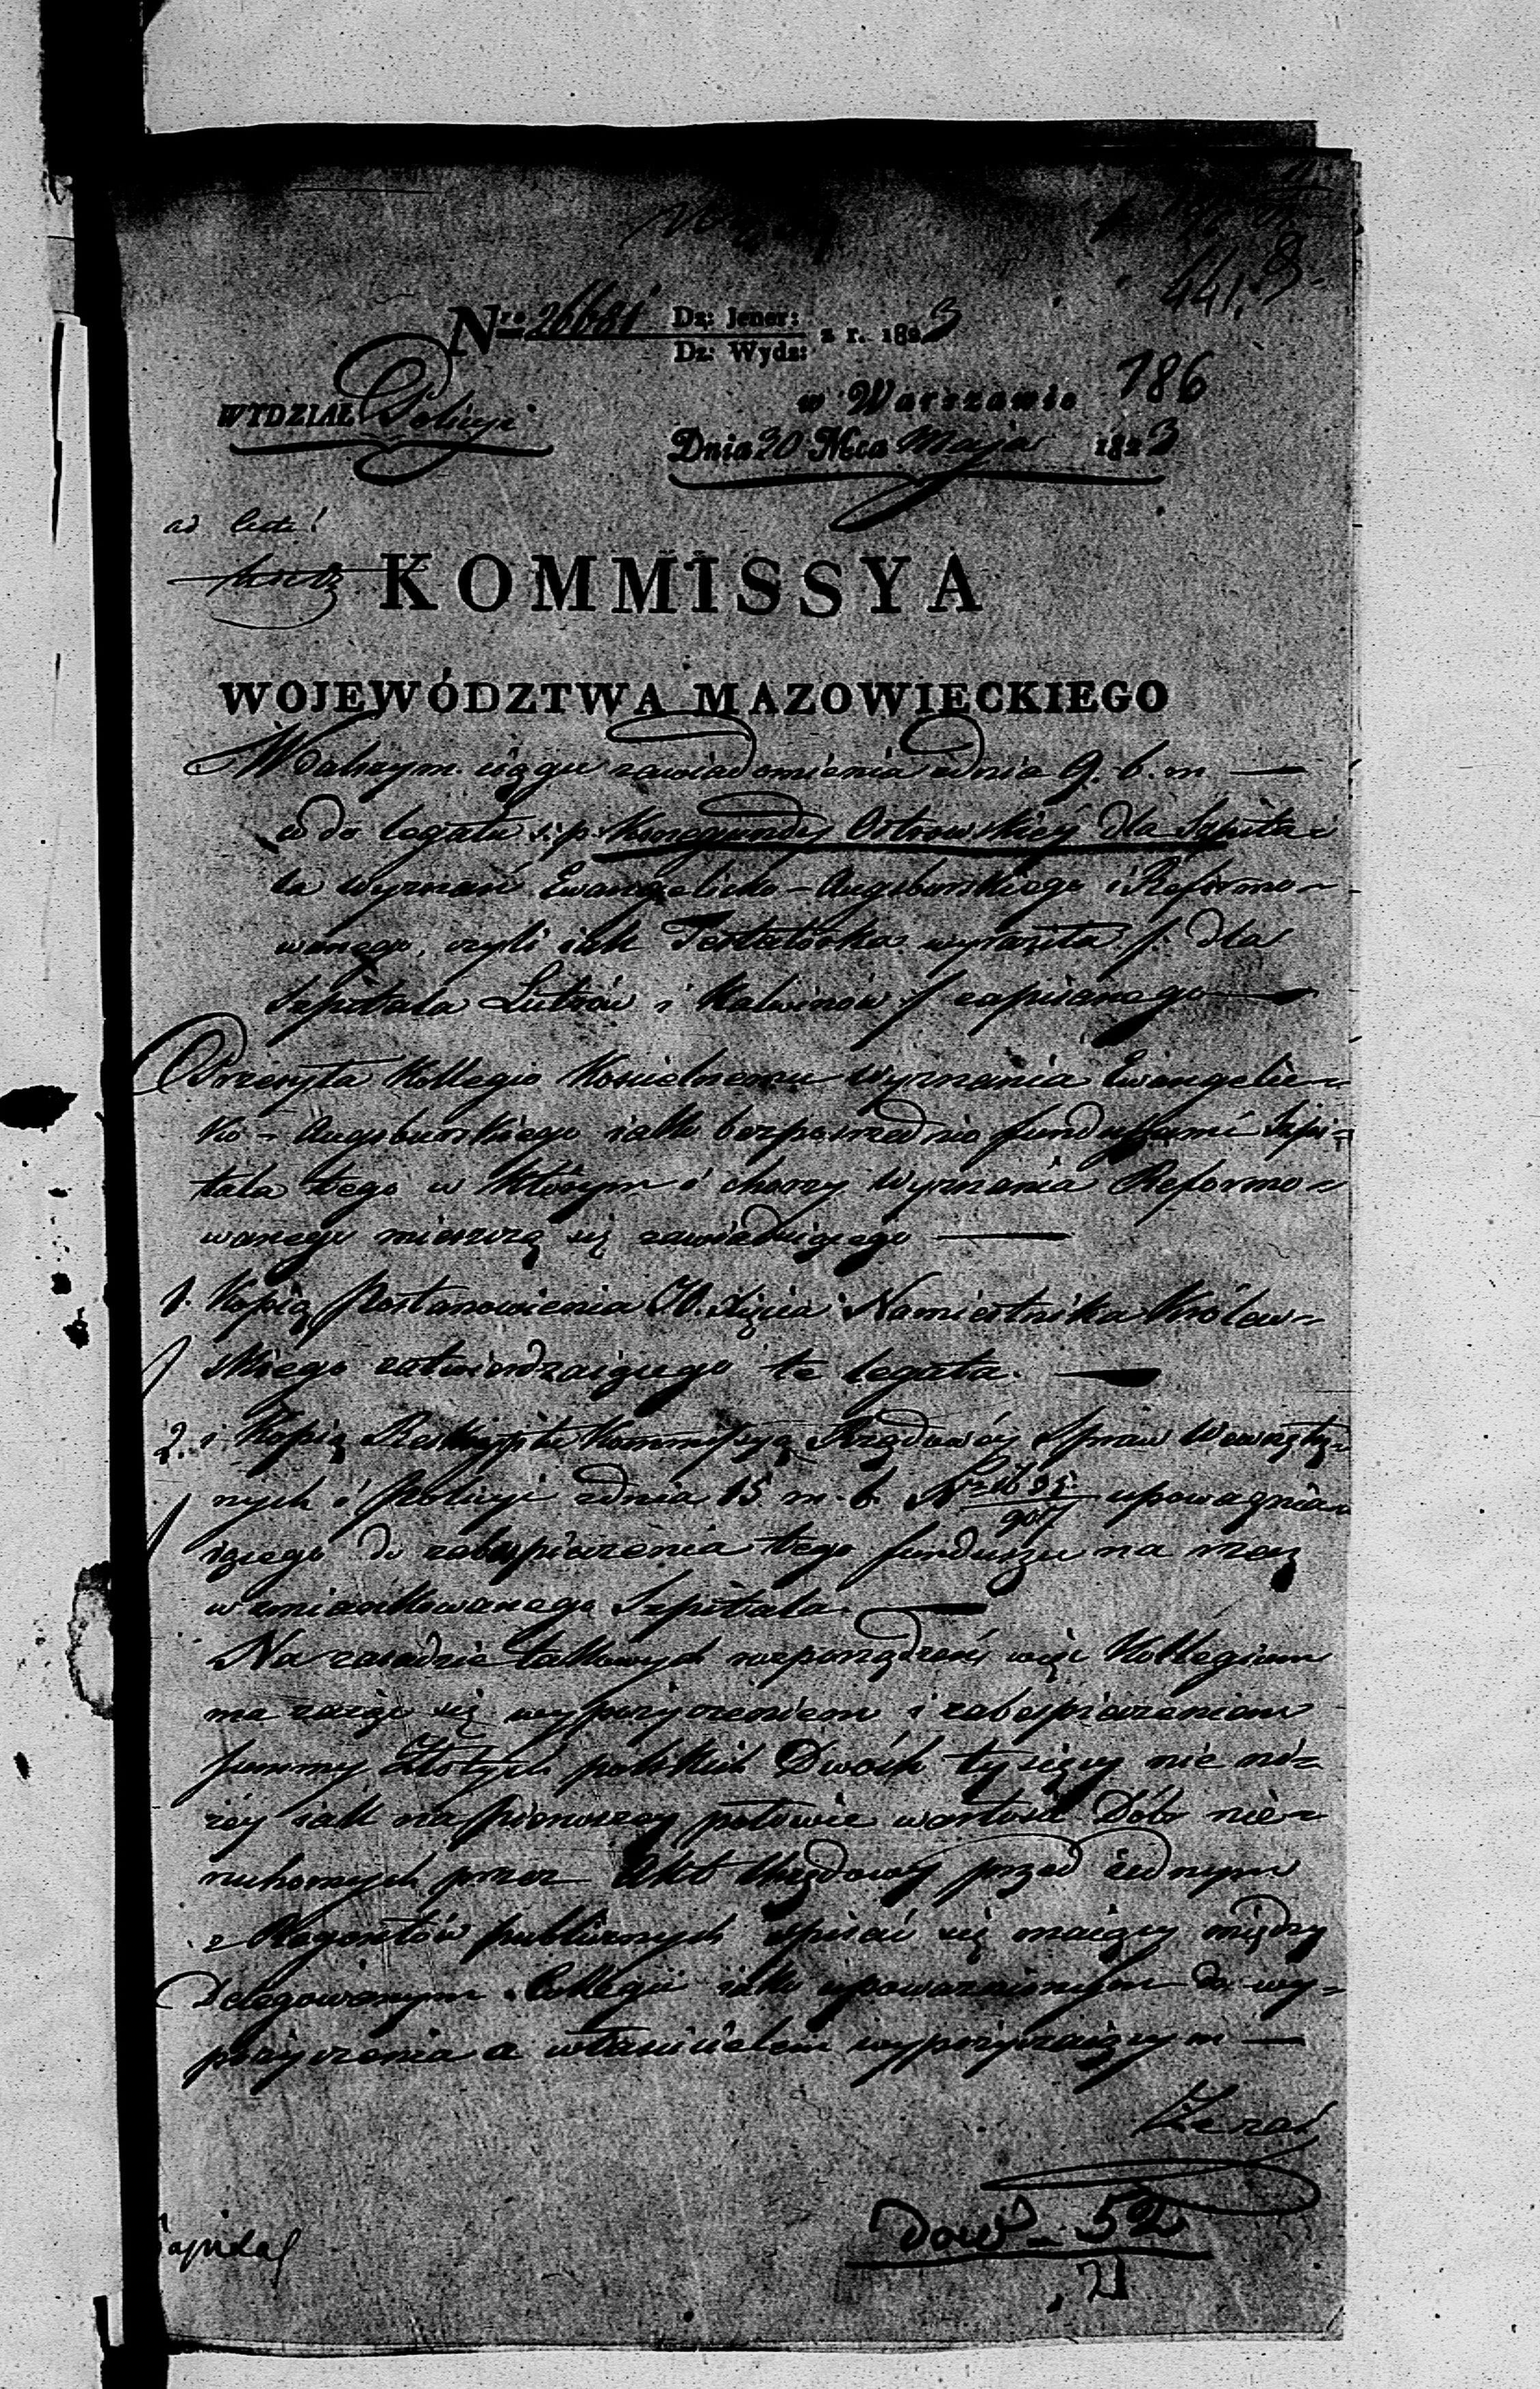 441.
Nro 26681 Dz: Jener: z r. 1823
Dz: Wydz:
186
WYDZIAŁ Policyi
w Warszawie
Dnia 30 Mca Maja 1823
ad
KOMMISSYA
WOJEWÓDZTWA MAZOWIECKIEGO
W dalszym ciągu zawiadomienia z dnia 9. b. m. —
w do legatu ś. p. Kunegundy Ostrowskiéj dla Szpita-
la wyznań Ewangelicko-Augsburskiego i Reformo-
wanego, czyli iak Testatorka wyraziła /: dla
szpitala Lutrów i Kalwinów :/ zapisanego —
Przesyła Kollegio Kościelnemu wyznania Ewangelic-
ko-Augsburskiego iako bezpośrednio funduszami Szpi-
tala tego w którym i chorzy Wyznania Reformo-
wanego mieszczą się zawiaduiącego —
1. Kopią Postanowienia JO. Xięcia Namiestnika Królew-
skiego zatwierdzaiącego te legata. —
2. i Kopią Reskryptu Kommissyi Rządowéj Spraw Wewnętrz-
nych i Policyi z dnia 15 m. b. Nr upoważnia-
iącego do zabespieczenia tego funduszu na rzecz
wzmiankowanego Szpitala. —
Na zasadzie takowych rozporządzeń więc Kollegium
ma zaiąć się wypożyczeniem i zabespieczeniem
summy Złotych polskich Dwóch tysięcy nie niż-
éy iak na pierwszey połowie wartości Dóbr nie-
ruchomych przez Akt Urzędowy przed iednym
z Regentów publicznych spisać się maiący między
Delegowanym Collegii iako upoważnionym do wy-
pożyczenia a właścicielem wypożyczaiącym —
Dow. 52
21